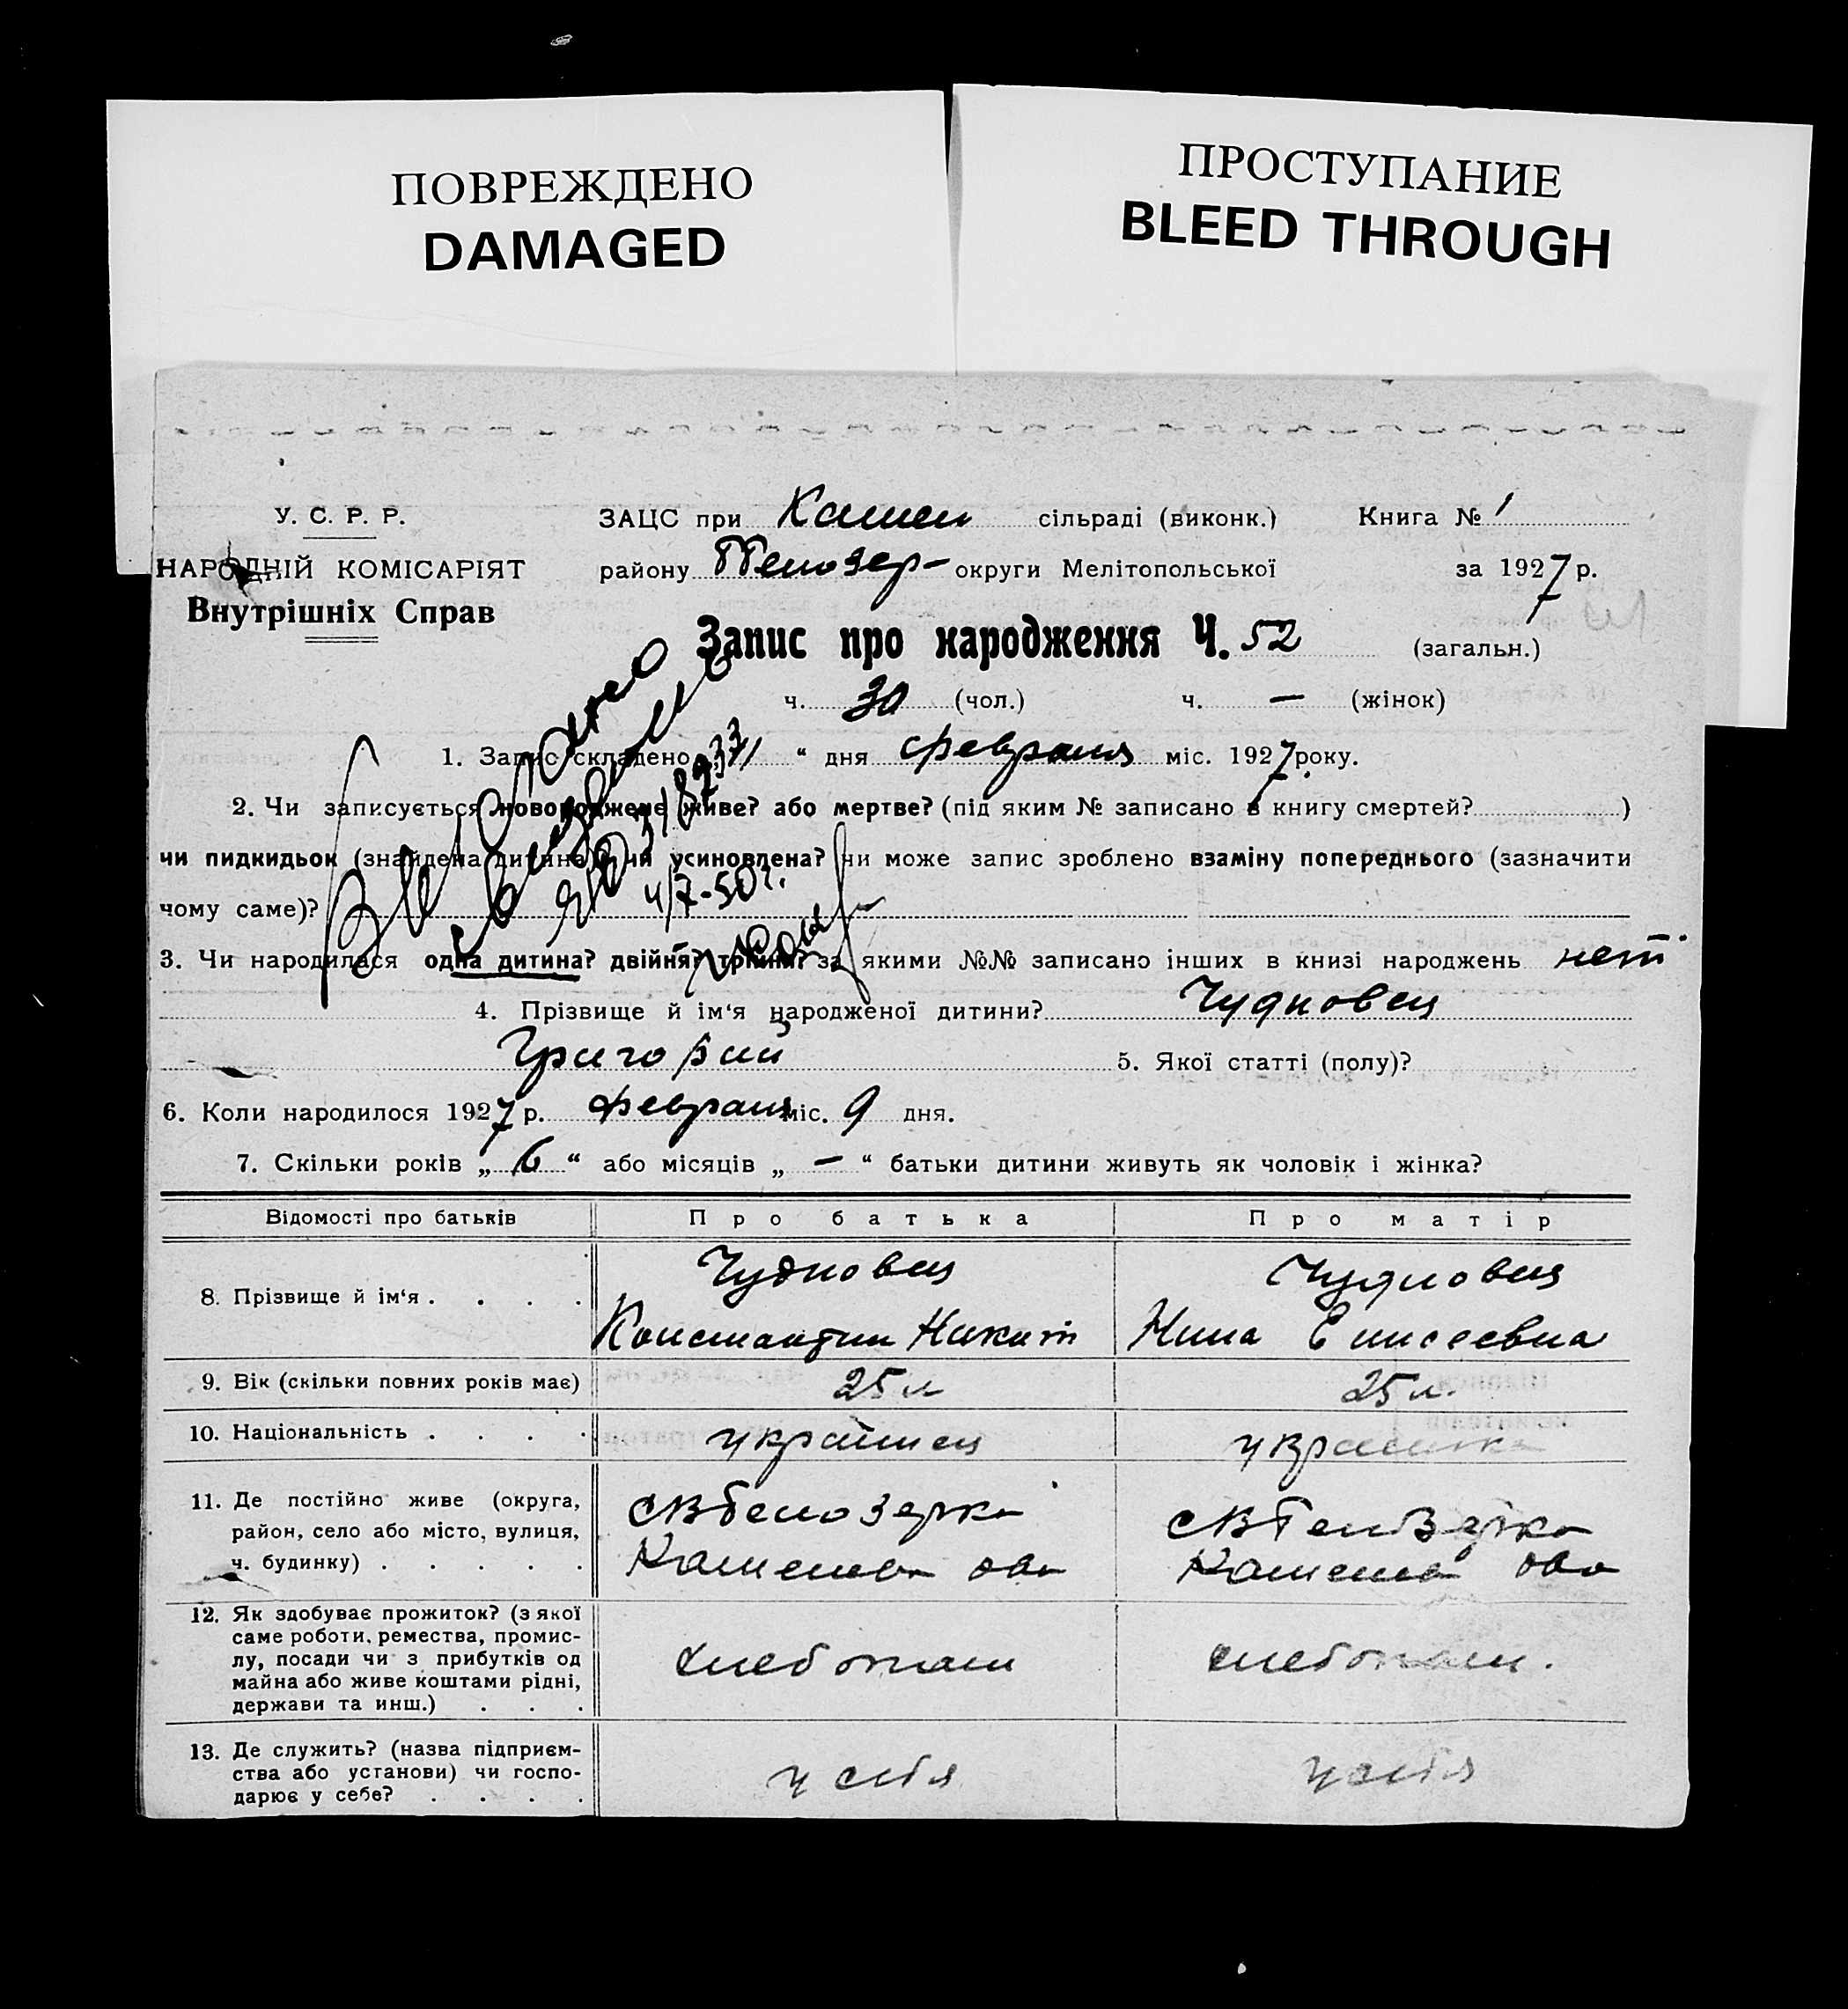 ПОВРЕЖДЕНО
DAMAGED
ПРОСТУПАНИЕ
BLEED THROUGH
У. С. Р. Р.
НАРОДНІЙ КОМІСАРІЯТ
Внутрішніх Справ
ЗАЦС при Камен сільраді (виконк.) Книга № 1
району Белозер- округи Мелітопольської за 1927 р.
Запис про народження Ч. 52 (загальн.)
ч. 30 (чол.) ч. — (жінок)
1. Запис складено " дня февраля міс. 1927 року.
2. Чи записується новороджене живе? або мертве? (під яким № записано в книгу смертей? )
чи пидкидьок (знайдена дитина) чи усиновлена? чи може запис зроблено взаміну попереднього (зазначити
чому саме)?
Выдано
свидетельство
ЯЮ 318933
4/7-50г.
3. Чи народилася одна дитина? двійня? трійня? за якими №№ записано інших в книзі народжень нет
4. Прізвище й ім'я народженої дитини? Чудновец
Григорий 5. Якої статті (полу)?
6. Коли народилося 1927 р. февраля міс. 9 дня.
7. Скільки років „ 6 “ або місяців „ — “ батьки дитини живуть як чоловік і жінка?
Відомості про батьків Про батька Про матір
8. Прізвище й ім'я . . . . Чудновец Чудновец
Константин Никит Нина Елисеевна
9. Вік (скільки повних років має) 25 л 25 л.
10. Національність . . . . украинец украинка
11. Де постійно живе (округа,
район, село або місто, вулиця,
ч. будинку) . . . . .
с В Белозерка
Каменева
с В Белозерка
Каменева
12. Як здобуває прожиток? (з якої
саме роботи, ремества, промис-
лу, посади чи з прибутків од
майна або живе коштами рідні,
держави та инш.) . . .
хлебопаш
хлебопаш.
13. Де служить? (назва підприєм-
ства або установи) чи госпо-
дарює у себе? . . . .
у себя
у себя